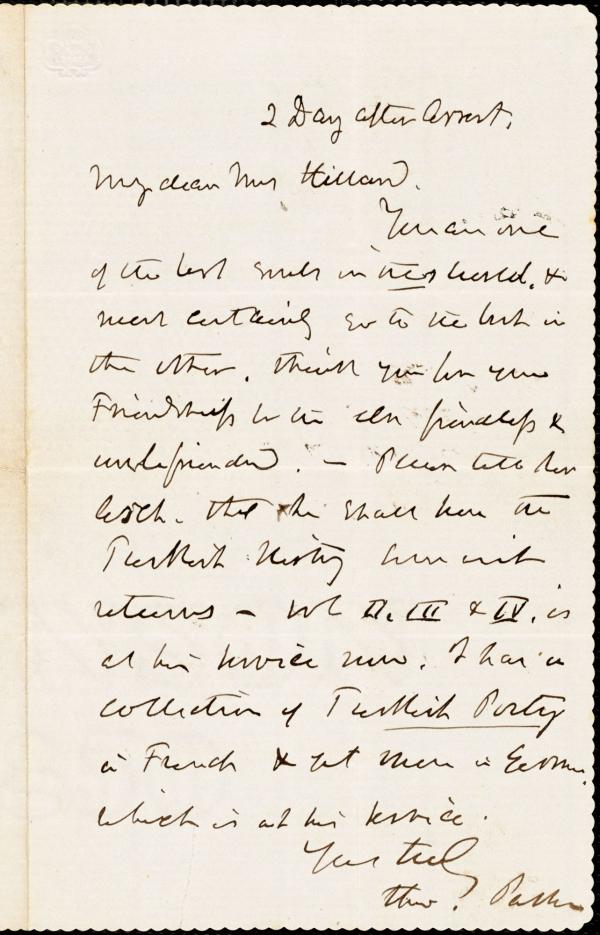 2 Day after Arrest.
My dear Mrs Hillard.
You are one
of the best souls in this world, &
most certainly go to the best in
the other. Thank you for your
Friendship to the else friendless &
unbefriended. — Please tell
that he shall have the
Turkish History soon as it
returns — vol II, III & IV, is
at his service now. I have a
collection of Turkish Poetry
in French & yet more in German,
which is at his service.
Yours truly
Theo. Parker